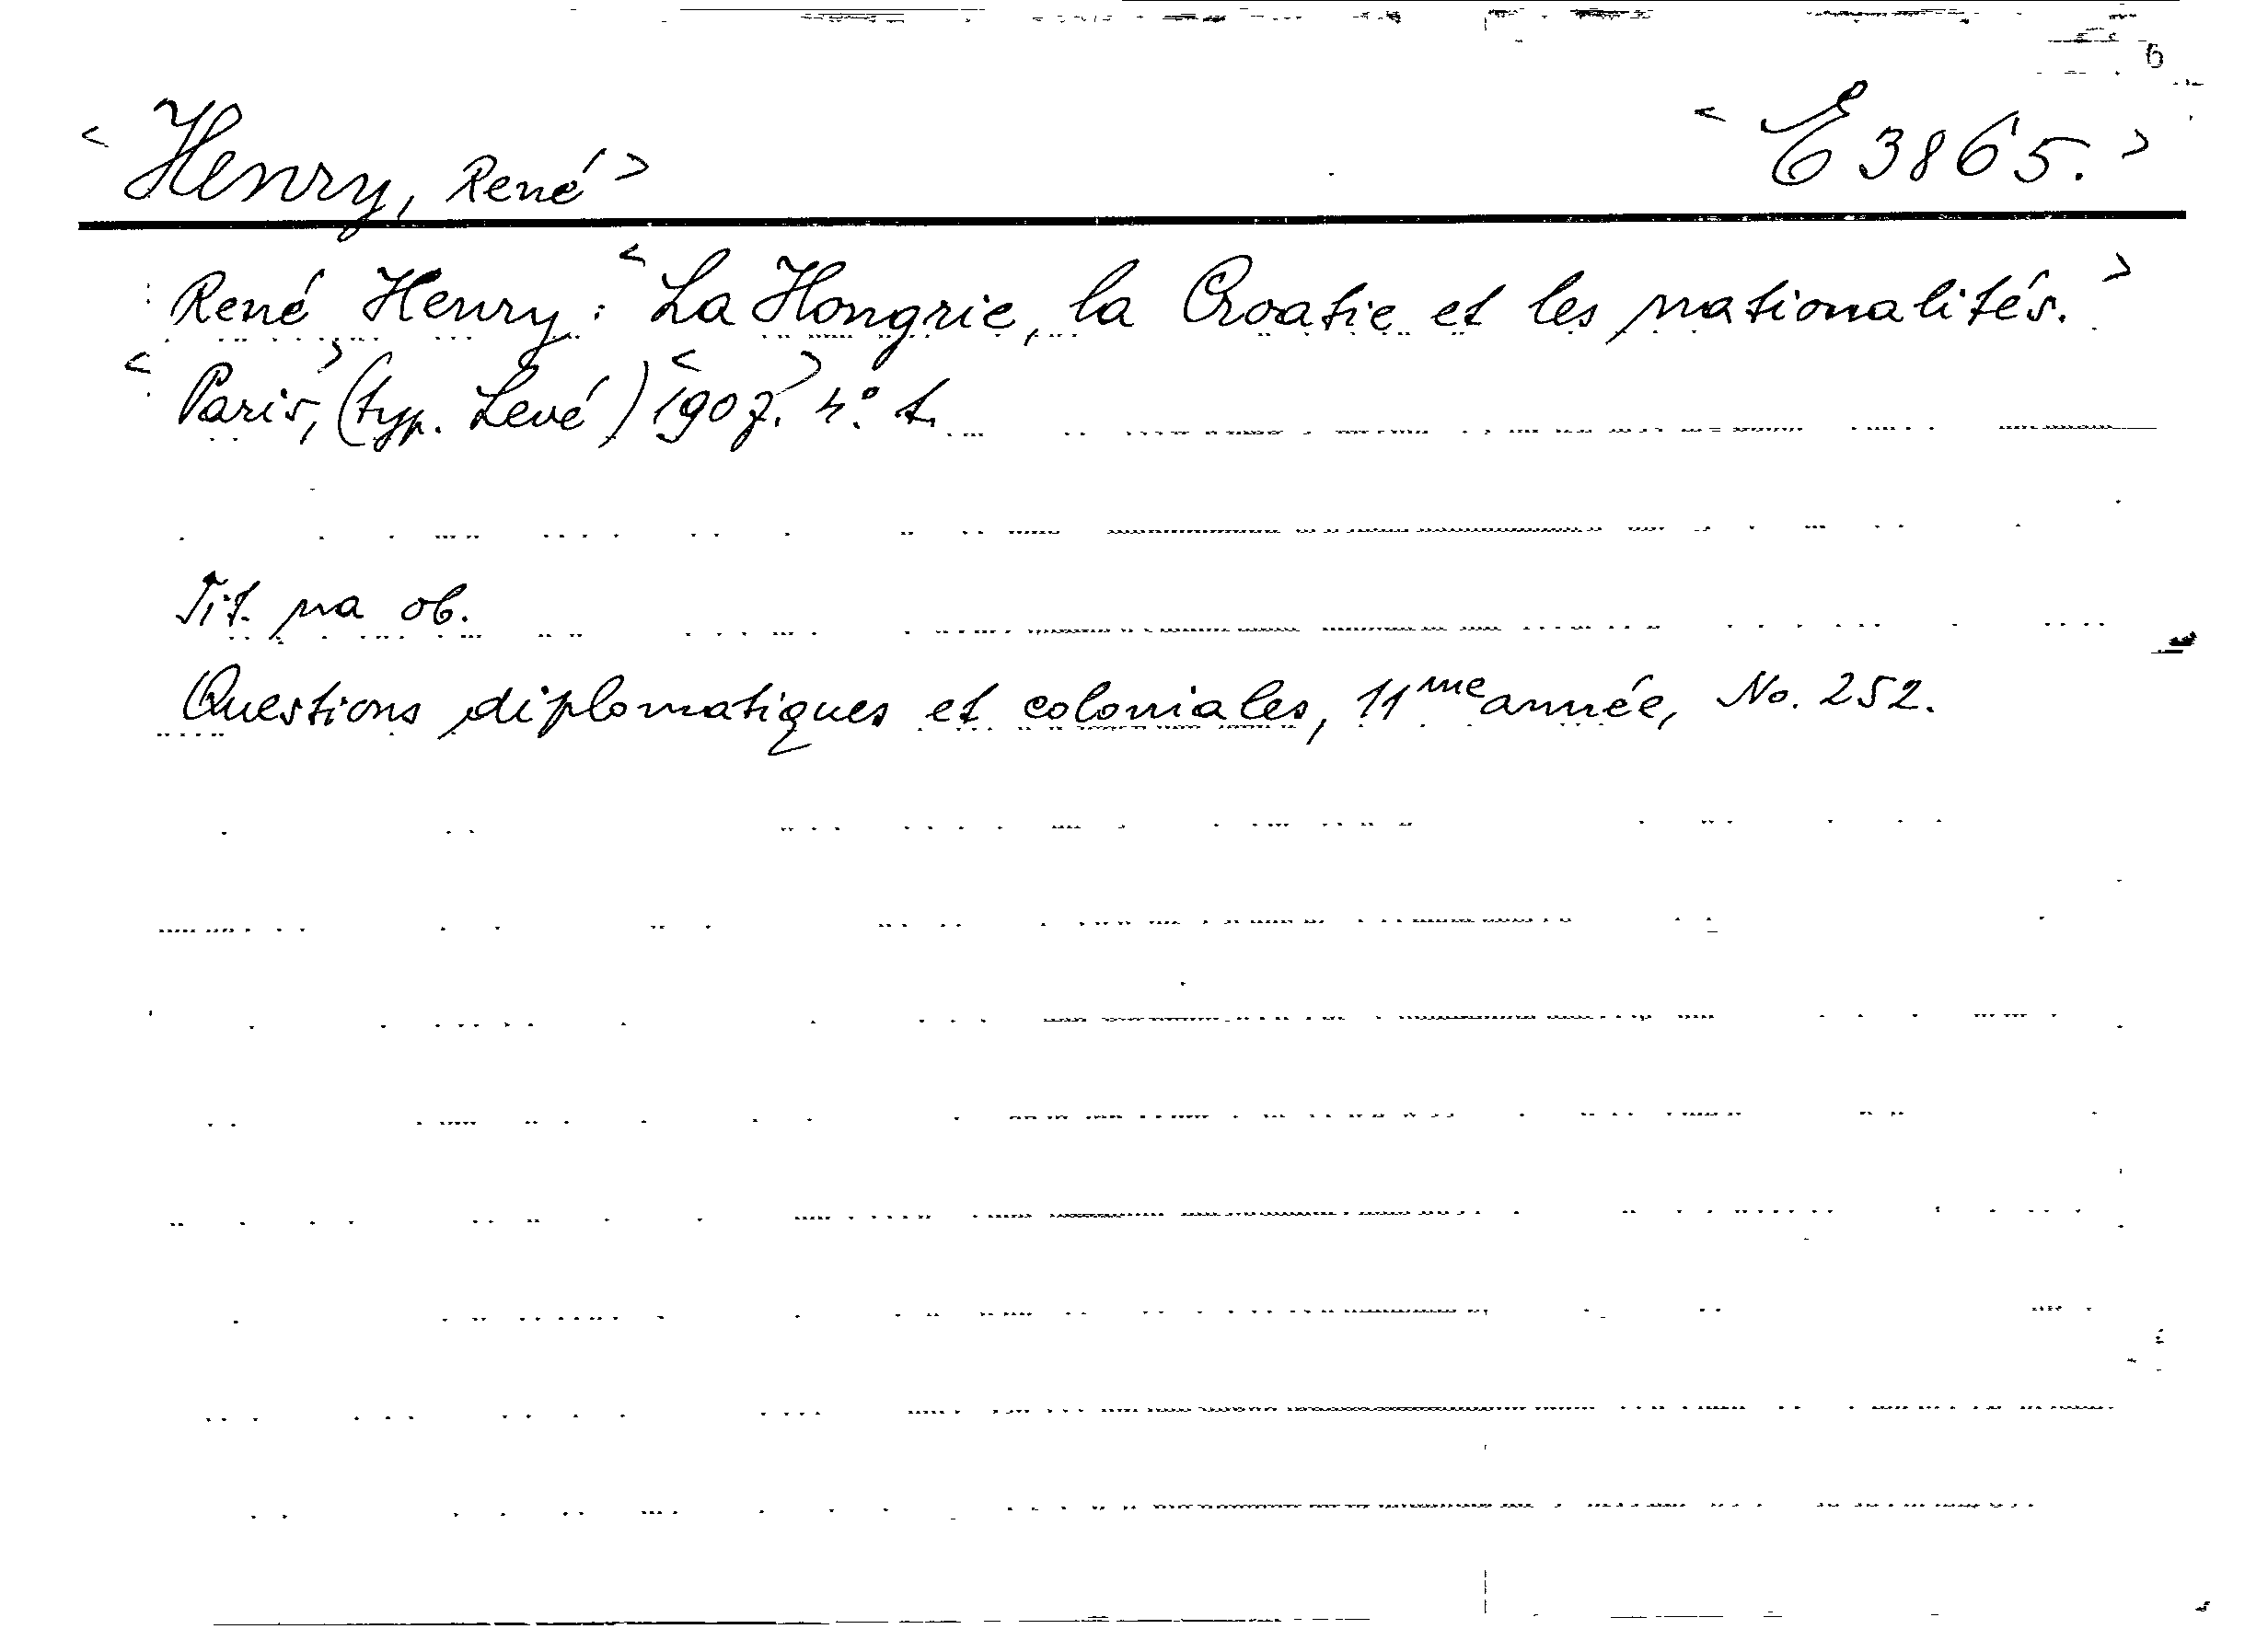 < Henry, René > < E 3865. >
René Henry: < La Hongrie, la Croatie et les nationalités. >
< Paris, > (typ. Levé) < 1907. > 4.° t.
Tit. na ob.
Questions diplomatiques et coloniales, 11me année, No. 252.